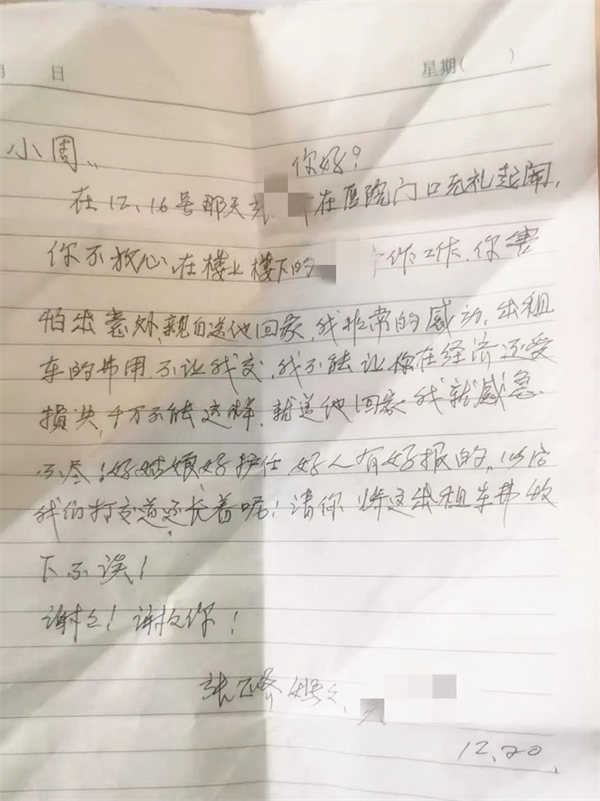 月 日 星期( )
小周、、 你好?
在12.16号那天 在医院门口无礼起闹,
你不放心在楼上楼下的 作工作.你害
怕出意外,亲自送他回家,我非常的感动.出租
车的费用不让我交,我不能让你在经济还受
损失,千万不能这样.就送他回家我就感急
不尽!好姑娘,好护仕.好人有好报的,以后
我们打交道还长着呢!请你将这出租车费收
下不误!
谢谢!谢谢你!
张 妈妈
12.20